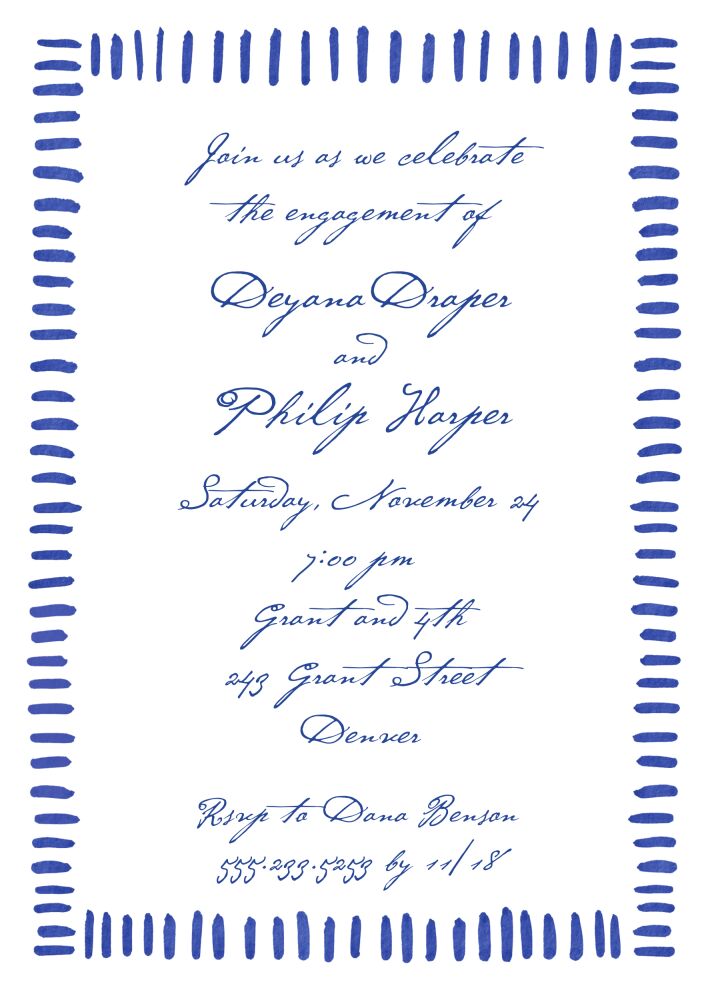 Join us as we celebrate
the engagement of
Deyana Draper
and
Philip Harper
Saturday, November 24
7:00 pm
Grant and 4th
243 Grant Street
Denver
Rsvp to Dana Benson
555.233.5253 by 11/18